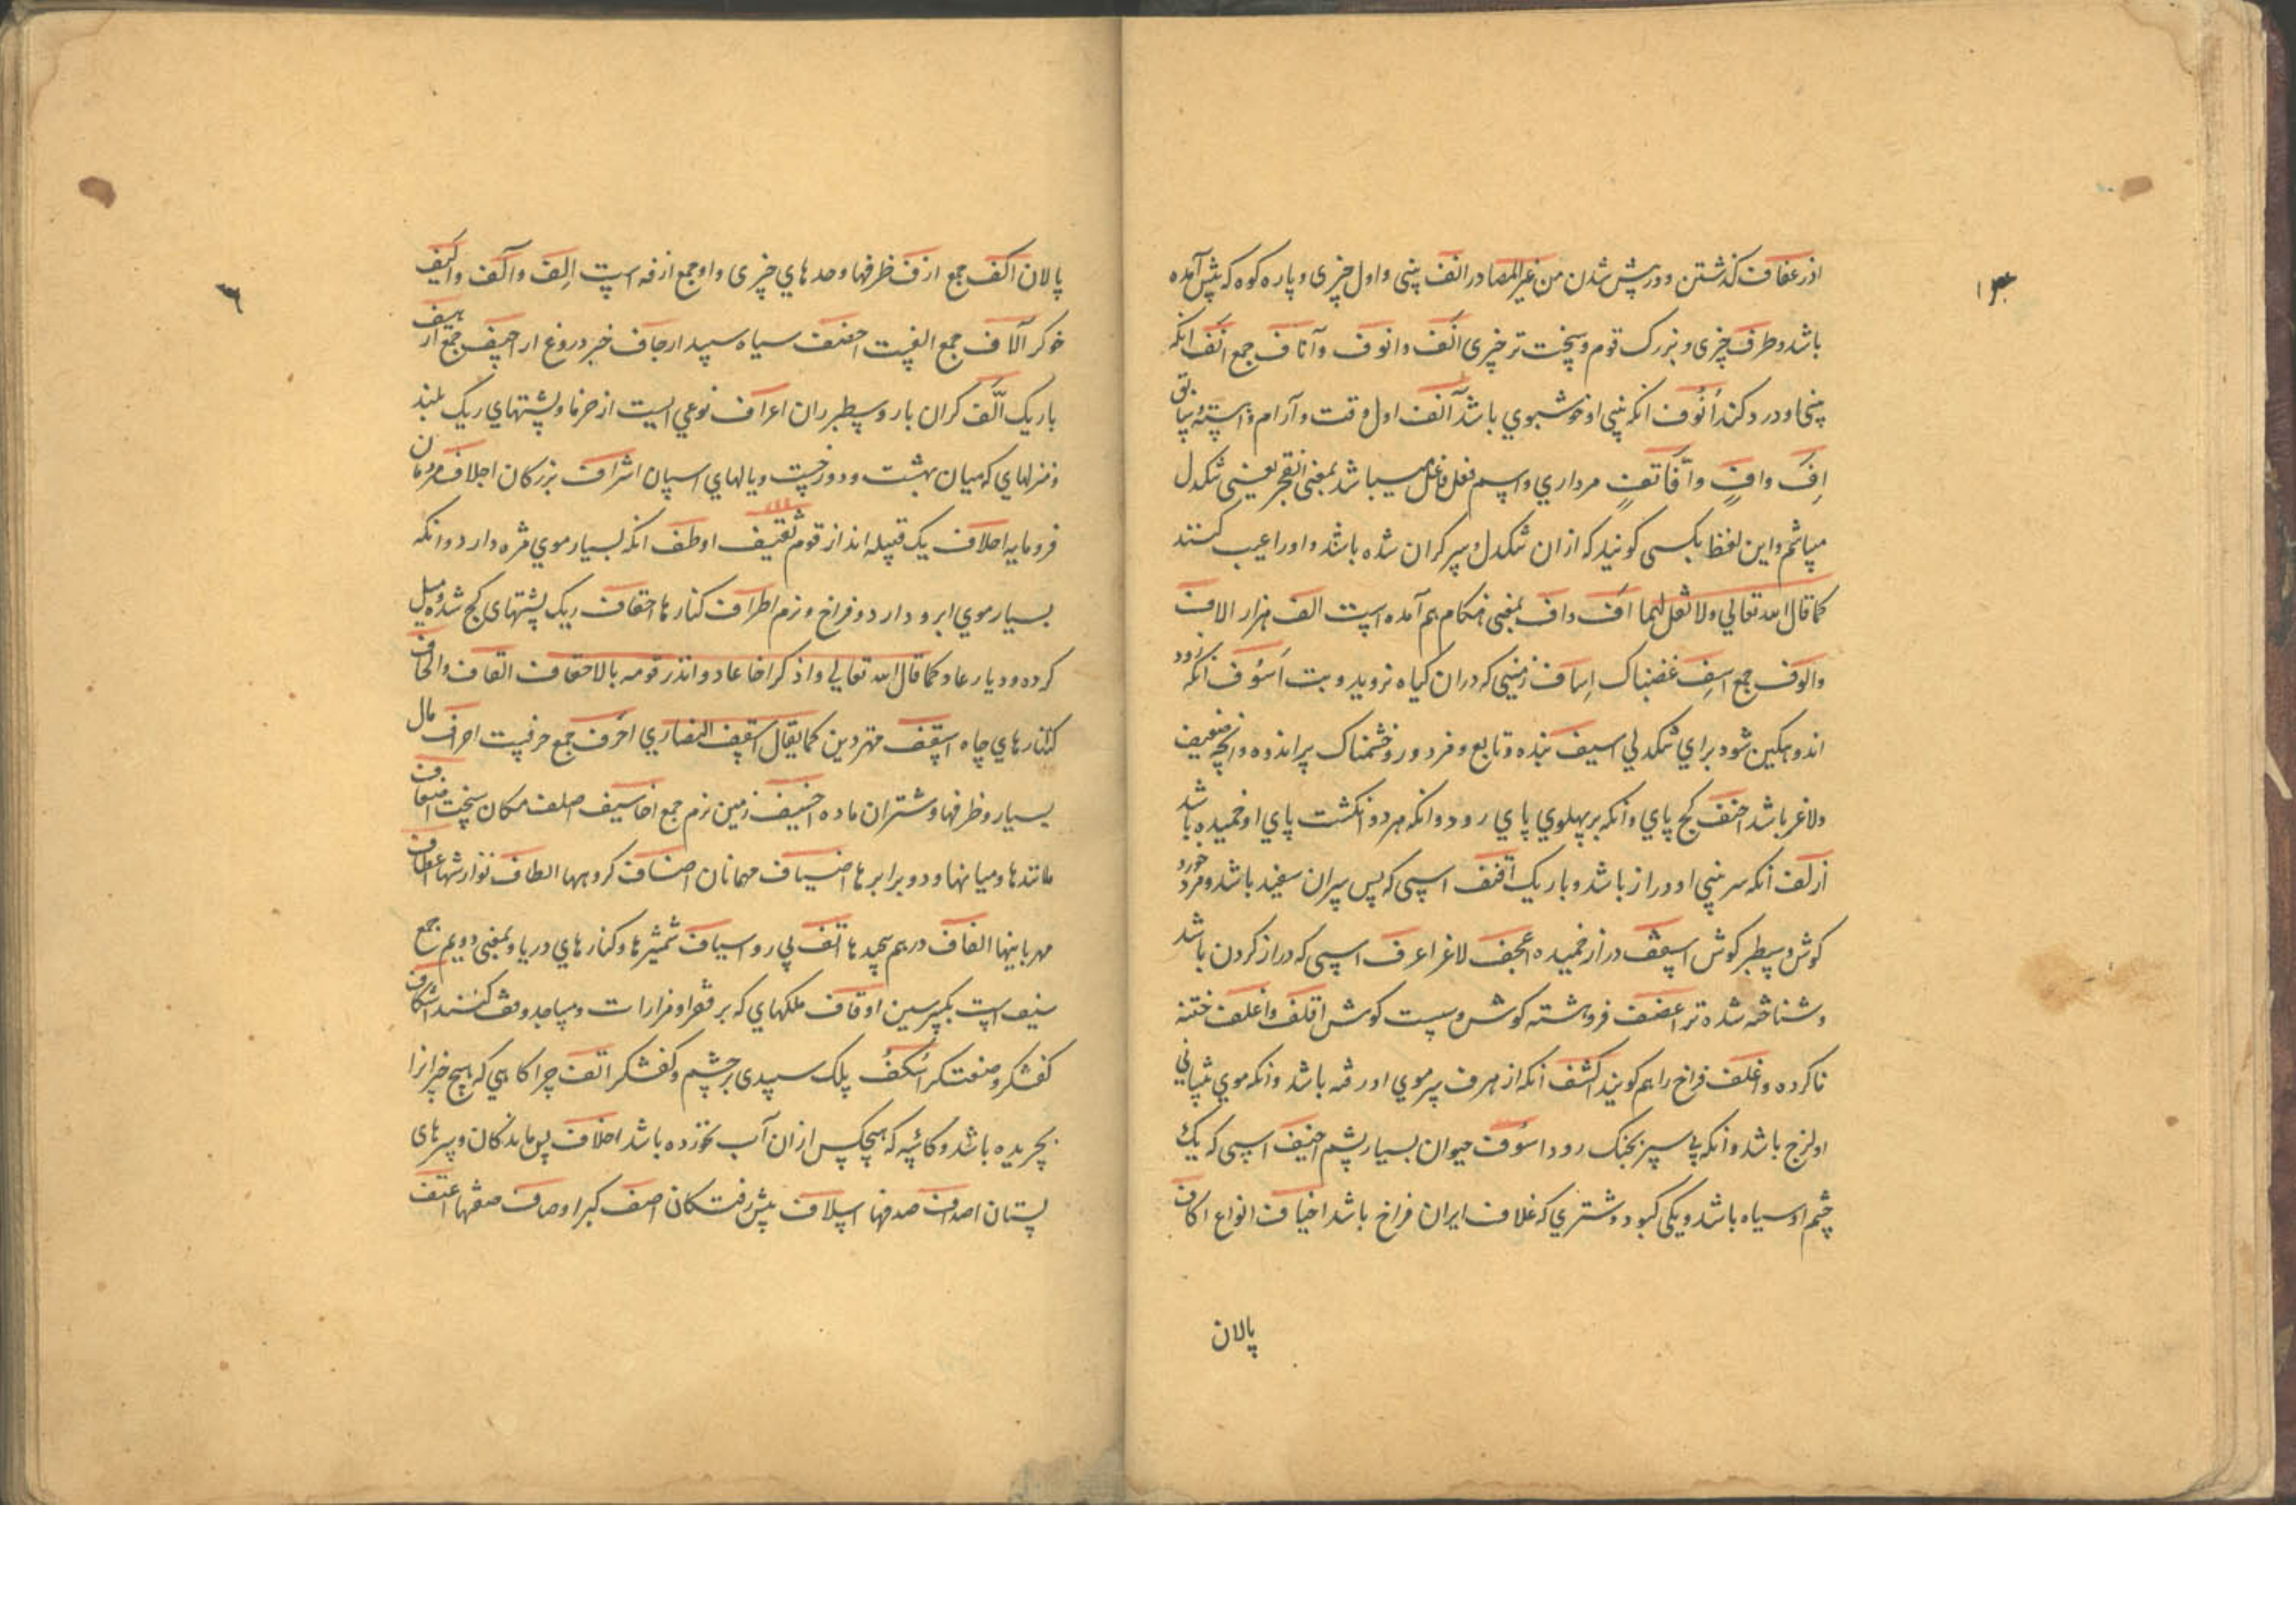 اذرعفاف گذشتن و درپش شدن من غیر المصادر انف بینی و اول چیزی و پاره کوه که پیش آمده
باشد و طرف چیزی و بزرک قوم و سخت تر چیزی انف و انوف و آناف جمع انف انکه
بینی او درد کند اَنُوف انکه بینی او خوشبوی باشد آنف اول وقت و آرام
اِفَّ وافٍ وافًا تفٍ مرداری و اسم فعل میباشد بمعنی اتضجر یعنی تنکدل
میباشم و این لفظ بکسی کویند که ازان تنکدل و سرکران شده باشد و اورا عیب کنند
کما قال الله تعالی ولا تقل لهما اف واف بمعنی هنکام هم آمده است الف هزار الاف
والوف جمع اسِف غضبناک اِساف زمینی که دران کیاه نروید و بت اَسُوف انکه زود
اندوهکین شود برای تنکدلی اسیف بنده و تابع و فرد و روز خشمناک پر اندوه و انچه ضعیف
ولاغر باشد احنف کج پای و انکه بر پهلوی پای رود و انکه هر دو انکشت پای او خمیده باشد
ازلف انکه سر بینی او دراز باشد و باریک اقنف اسپی که پس سر ان سفید باشد و خورد
کوش و سطبر کوش اسقف دراز خمیده اعجف لاغر اعرف اسپی که دراز کردن باشد
و شناخته شده تر اغضف فروهشته کوش و سست کوش اقلف واغلف ختنه
ناکرده و اغلف فراخ را هم کویند اکشف انکه از هر ف سر موی او رفته باشد و انکه موی پیشانی
او لزج باشد و انکه بی سپر بجنک رود اسوف حیوان بسیار پشم اخیف اسپی که یک
چشم او سیاه باشد و یکی کبود و شتری که غلاف ایران فراخ باشد اخیاف انواع اکاف
پالان
پالان اکف جمع ازف ظرفها و حدهای چیزی و او جمع ازفه است اِلِف و آلف و الیف
خوکر آلاف جمع الفیت اخصف سیاه سپید ارجاف خبر دروغ اراجیف جمع ارهیف
باریک الّف کران بار و سطبر ران اعراف نوعی است از خرما و پشتهای ریک بلند
و منزلهای که میان بهشت و دوزخست و یالهای اسپان اشراف بزرکان اجلاف مردمان
فرومایه احلاف یک قبیله اند از قوم ثقیف اوطف انکه بسیار موی مژه دارد و انکه
بسیار موی ابرو دارد و فراخ و نرم اطراف کنارها احقاف ریک پشتهای کج شده و میل
کرده و دیار عاد کما قال الله تعالی واذکر اخا عاد و انذر قومه بالاحقاف القاف والحاف
کنارهای چاه اسقف مهتر دین کما یقال اسقف النصاری احرف جمع حرفیت احراف مال
بسیار و ظرفها و شتران ماده اخیف زمین نرم جمع اخاسیف صلف مکان سخت اضعاف
مانندها و میانها و دو برابرها اضیاف مهمانان اصناف کروهها الطاف نوازشها اعطاف
مهربانیها الفاف درهم پیچیدها اتف پی رو اسیاف شمشیرها و کنارهای دریا و بمعنی دویم جمع
سیف است بکسر سین اوقاف ملکهای که بر فقرا و مزارات و مساجد وقف کنند اسکاف
کفشکر و صنعتکر اُسکُفُ پلک سپیدی بر چشم و کفشکر انف چراکاهی که هیچ چیز انرا
بچریده باشد و کاسه که هیچکس ازان آب نخورده باشد اخلاف پس ماندکان و سرهای
پستان اصداف صدفها اسلاف پیش رفتکان اصف کبر اوصاف صفتها اعنف